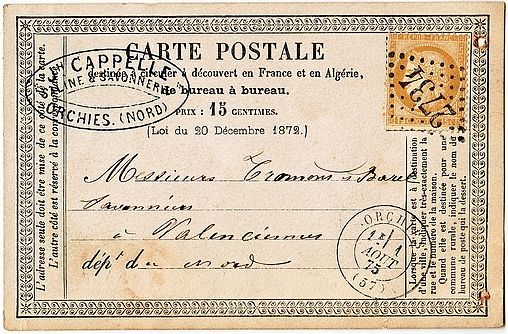 CAPPELLE
LINE & SAVONNERIE
ORCHIES. (NORD)
CARTE POSTALE
destinée à circuler à découvert en France et en Algérie,
de bureau à bureau.
PRIX : 15 CENTIMES.
(Loi du 20 Décembre 1872.)
2734
Messieurs
à Valenciennes
dépt du Nord
ORCHI
1
AOUT
75
(57)
L'adresse seule doit être mise de ce côté de la carte.
L'autre côté est réservé à la correspondance
Lorsque la carte est à destination
d'une ville, indiquer très-exactement la
rue et le numéro de la maison.
Quand elle est destinée pour une
commune rurale, indiquer le nom du
bureau de poste qui la dessert.